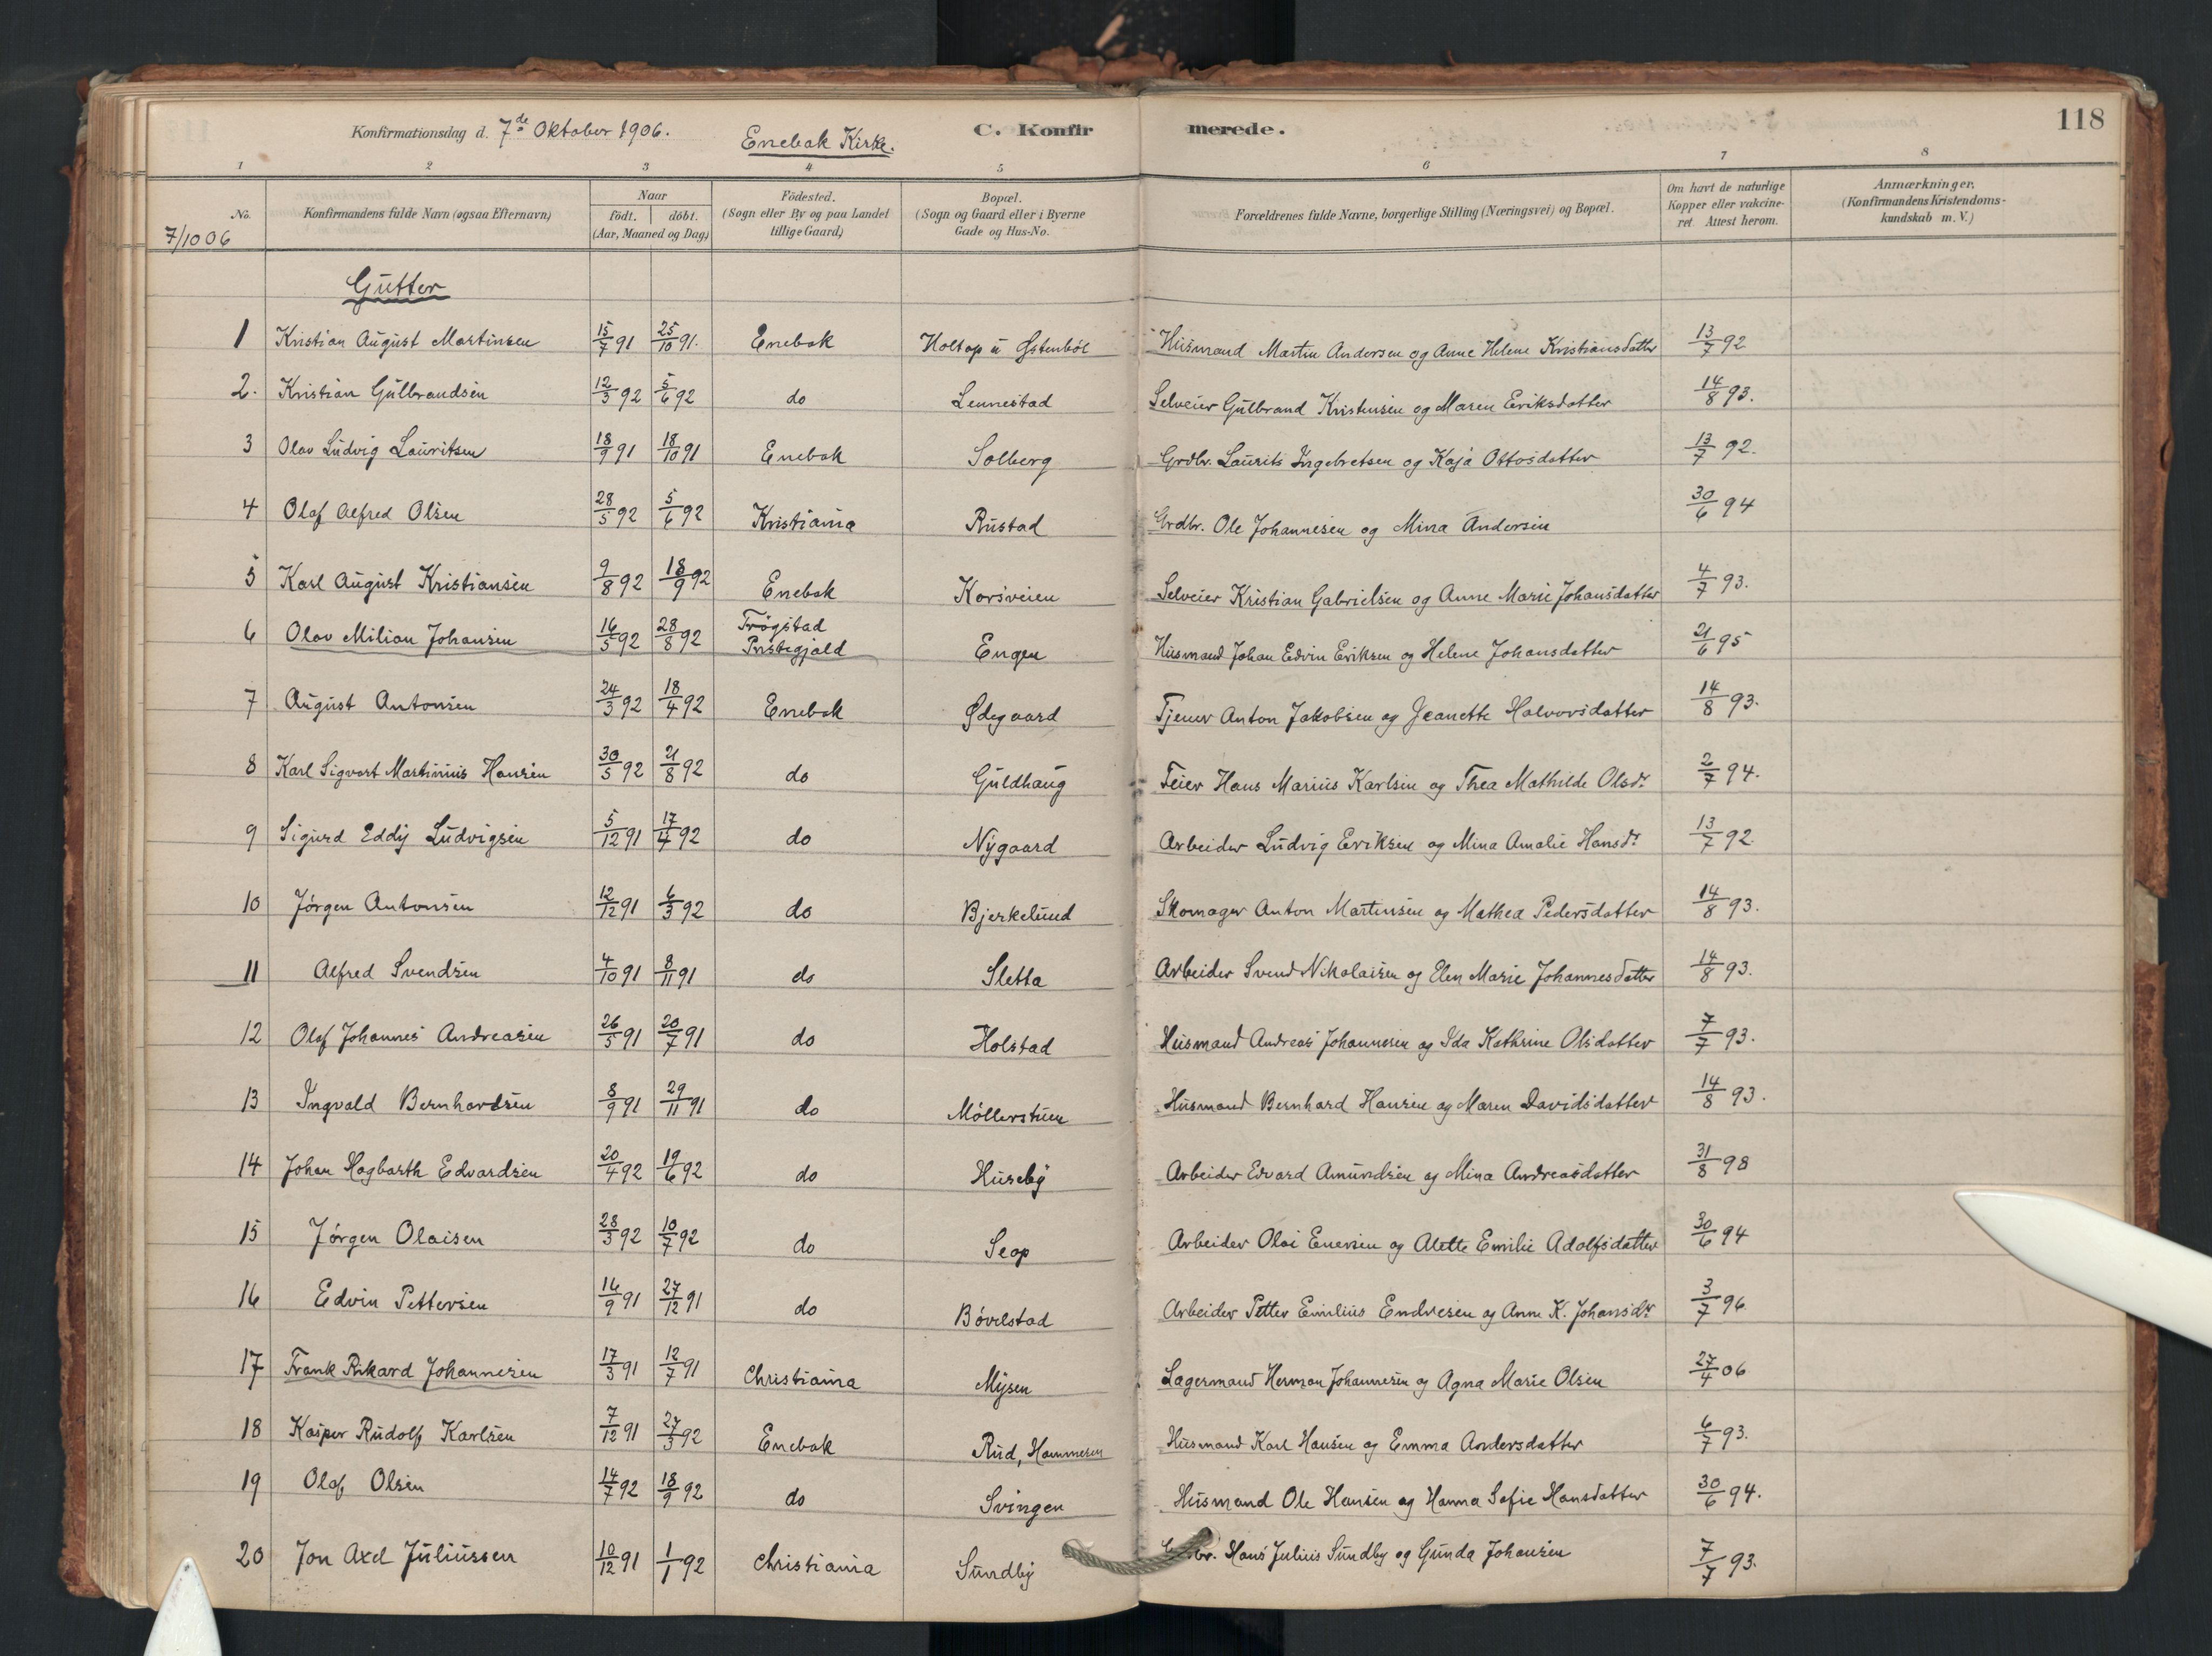 Konfirmationsdag d. 7de Oktober 1906. Enebak Kirke. C. Konfirmerede. 118
1 2 3 4 5 6 7 8
No. Konfirmandens fulde Navn (ogsaa Efternavn) Naar født. døbt. (Aar, Maaned og Dag) Födested. (Sogn eller By og paa Landet tillige Gaard) Bopæl. (Sogn og Gaard eller i Byerne Gade og Hus-No. Forældrenes fulde Navne, borgerlige Stilling (Næringsvei) og Bopæl. Om havt de naturlige Kopper eller vakcineret. Attest herom. Anmærkninger. (Konfirmandens Kristendomskundskab m. V.)
7/10 06
Gutter
1 Kristian August Martinsen 15/7 91 25/10 91. Enebak Holtop u Østenböl Husmand Martin Andersen og Anne Helene Kristiansdatter 13/7 92
2. Kristian Gulbrandsen 12/3 92 5/6 92 do Lennestad Selveier Gulbrand Kristensen og Maren Eriksdatter 14/8 93.
3 Olav Ludvig Lauritsen 18/9 91 18/10 91 Enebak Solberg Grdbr. Laurits Ingebretsen og Kaja Ottosdatter 13/7 92.
4 Olaf Alfred Olsen 28/5 92 5/6 92 Kristiania Rustad Grdbr. Ole Johannesen og Mina Andersen 30/6 94
5 Karl August Kristiansen 9/8 92 18/9 92 Enebak Korsveien Selveier Kristian Gabrielsen og Anne Marie Johansdatter 4/7 93.
6 Olav Milian Johansen 16/5 92 28/8 92 Trøgstad Prstegjald Engen Husmand Johan Edvin Eriksen og Helene Johansdatter 21/6 95
7 August Antonsen 24/3 92 18/4 92 Enebak Ødegaard Tjener Anton Jakobsen og Jeanette Halvorsdatter 14/8 93.
8 Karl Sigvart Martinius Hansen 30/5 92 21/8 92 do Guldhaug Feier Hans Marius Karlsen og Thea Mathilde Olsdr. 2/7 94.
9 Sigurd Eddy Ludvigsen 5/12 91 17/4 92 do Nygaard Arbeider Ludvig Eriksen og Mina Amalie Hansdr. 13/7 92.
10 Jörgen Antonsen 12/12 91 6/3 92 do Bjerkelund Skomager Anton Martinsen og Mathea Pedersdatter 14/8 93.
11 Alfred Svendsen 4/10 91 8/11 91 do Sletta Arbeider Svend Nikolaisen og Elen Marie Johannesdatter 14/8 93.
12 Olaf Johannes Andreasen 26/5 91 20/7 91 do Holstad Husmand Andreas Johannesen og Ida Kathrine Olsdatter 7/7 93.
13 Ingvald Bernhardsen 8/9 91 29/11 91 do Möllerstuen Husmand Bernhard Hansen og Maren Davidsdatter 14/8 93.
14 Johan Hagbarth Edvardsen 20/4 92 19/6 92 do Huseby Arbeider Edvard Amundsen og Mina Andreasdatter 31/8 98
15 Jörgen Olaisen 28/3 92 10/7 92 do Seop Arbeider Olai Enersen og Alette Emilie Adolfsdatter 30/6 94
16 Edvin Pettersen 16/9 91 27/12 91 do Bövelstad Arbeider Petter Emilius Endresen og Anne K. Johansdr. 3/7 96.
17 Frank Rikard Johannesen 17/3 91 12/7 91 Christiania Mysen Lagermand Herman Johannesen og Agna Marie Olsen 27/4 06
18 Kasper Rudolf Karlsen 7/12 91 27/3 92 Enebak Rud, Hammeren Husmand Karl Hansen og Emma Andersdatter 6/7 93.
19 Olaf Olsen 14/7 92 18/9 92 do Svingen Husmand Ole Hansen og Hanna Sofie Hansdatter 30/6 94.
20 Jon Axel Juliussen 10/12 91 1/1 92 Christiania Sundby Hans Julius Sundby og Gunda Johansen 7/7 93.